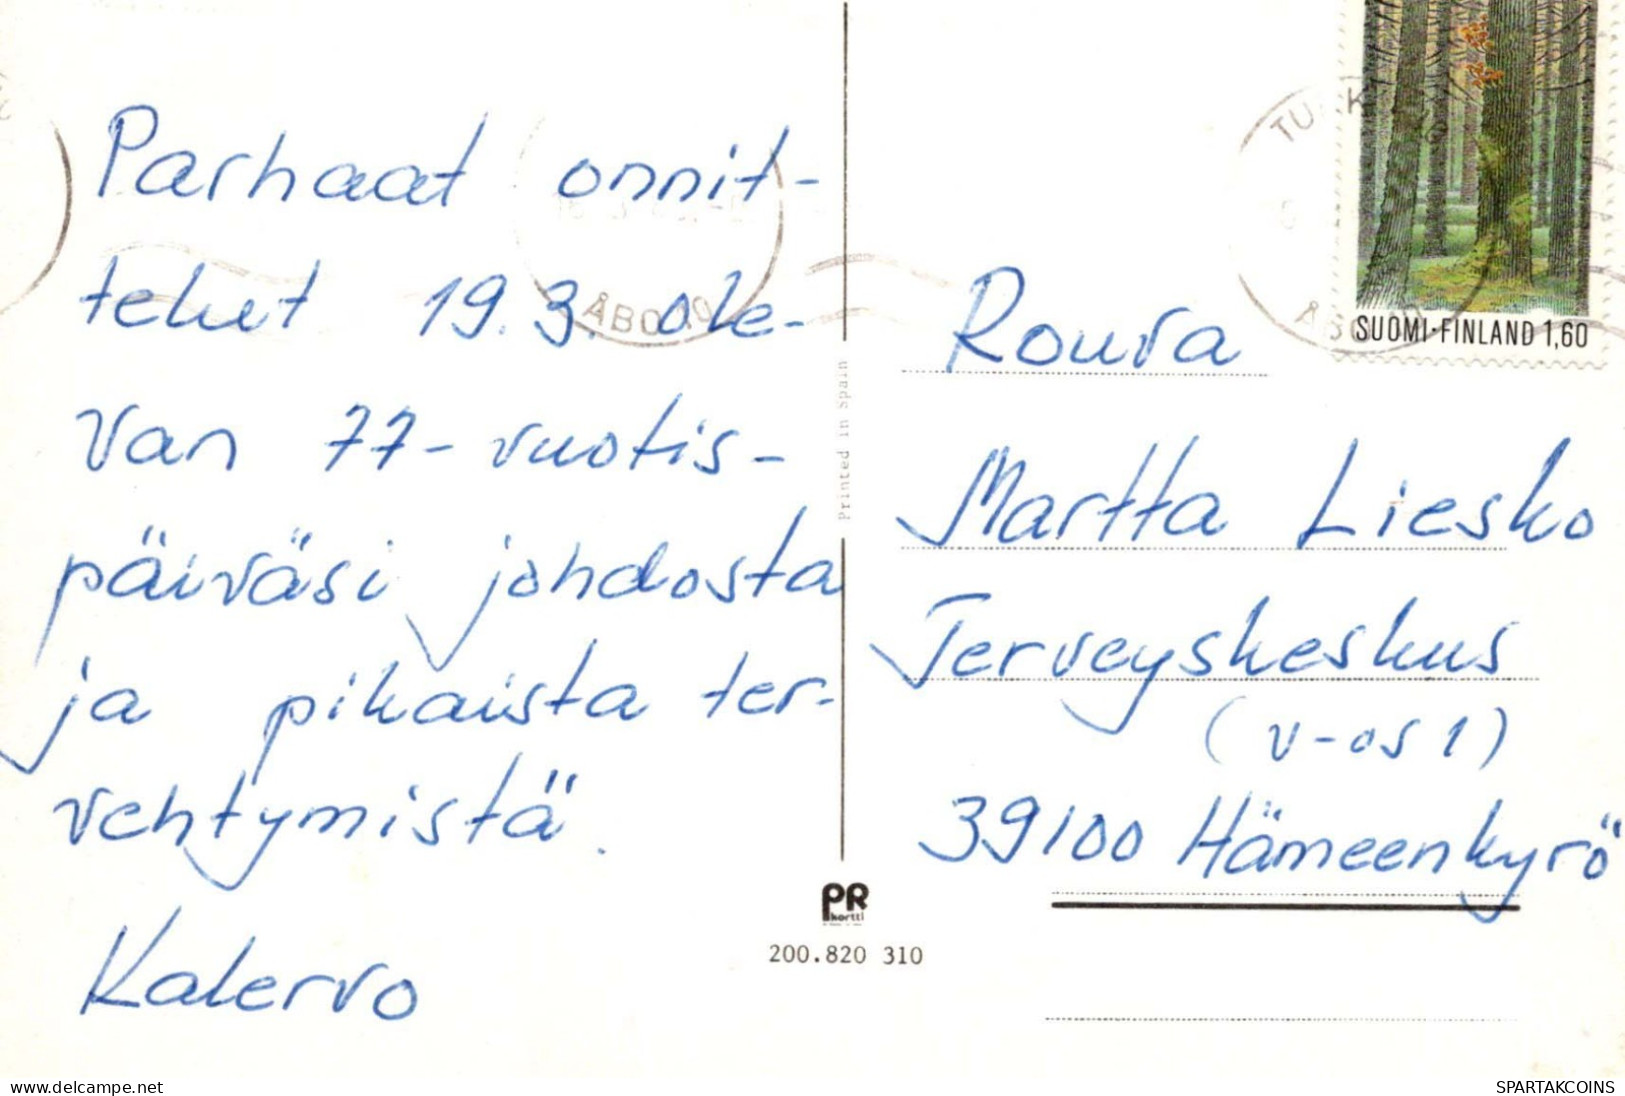 Parhaat onnit-
telut 19.3. ole-
van 77-vuotis-
päiväsi johdosta
ja pikaista ter-
vehtymistä.
Kalervo
SUOMI·FINLAND 1,60
ÅBO 10
Printed in Spain
Rouva
Martta Liesko
Terveyskeskus
(v-os 1)
39100 Hämeenkyrö
PR
kortti
200.820 310
delcampe.net
SPARTAKCOINS